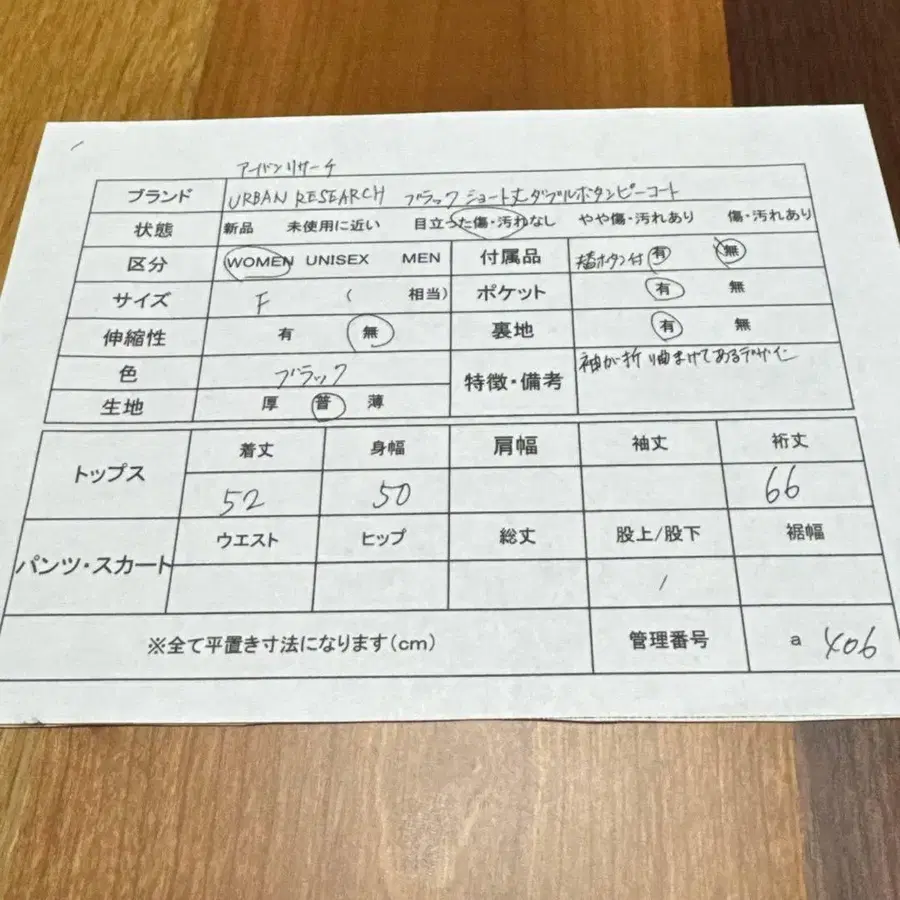 アーバンリサーチ
ブランド URBAN RESEARCH ブラックショート丈ダブルボタンピーコート
状態 新品 未使用に近い 目立った傷・汚れなし やや傷・汚れあり 傷・汚れあり
区分 WOMEN UNISEX MEN 付属品 替ボタン付 有 無
サイズ F ( 相当) ポケット 有 無
伸縮性 有 無 裏地 有 無
色 ブラック 特徴・備考 袖が折り曲まげてあるデザイン
生地 厚 普 薄
トップス 着丈 身幅 肩幅 袖丈 裄丈
52 50 66
パンツ・スカート ウエスト ヒップ 総丈 股上/股下 裾幅
/
※全て平置き寸法になります(cm) 管理番号 a 406